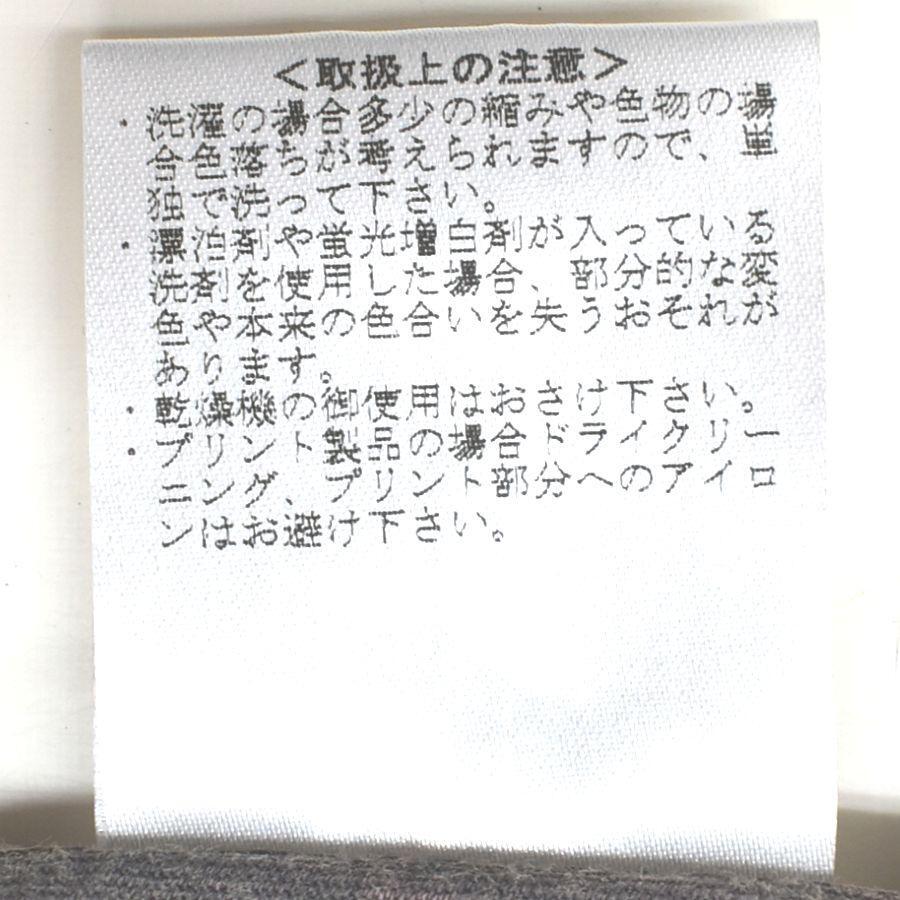 <取扱上の注意>
・洗濯の場合多少の縮みや色物の場
合色落ちが考えられますので、単
独で洗って下さい。
・漂泊剤や蛍光増白剤が入っている
洗剤を使用した場合、部分的な変
色や本来の色合いを失うおそれが
あります。
・乾燥機の御使用はおさけ下さい。
・プリント製品の場合ドライクリー
ニング、プリント部分へのアイロ
ンはお避け下さい。